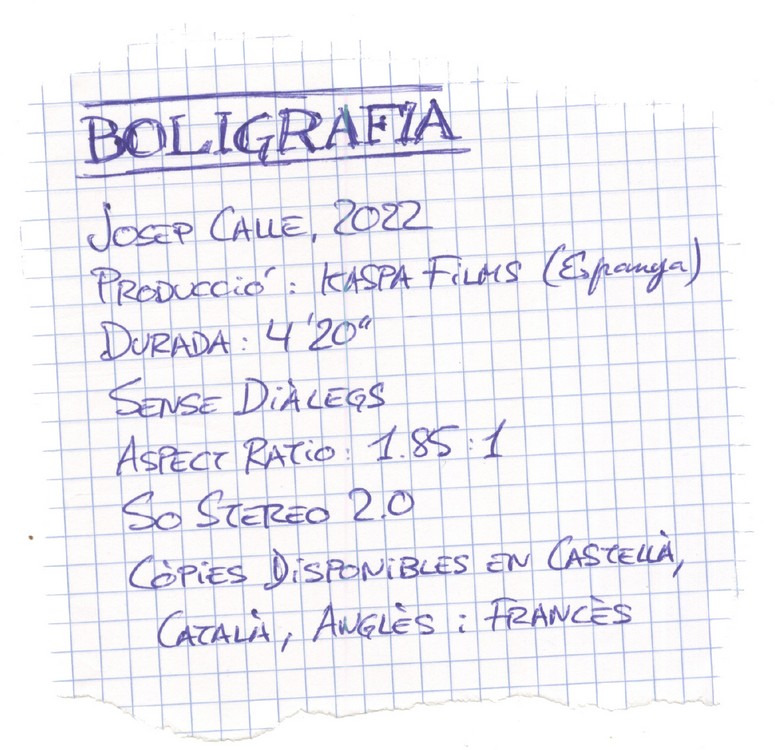 BOLIGRAFIA
JOSEP CALLE, 2022
PRODUCCIÓ: KASPA FILMS (Espanya)
DURADA: 4'20"
SENSE DIÀLEGS
ASPECT RATIO: 1.85:1
SO STEREO 2.0
CÒPIES DISPONIBLES EN CASTELLÀ,
CATALÀ, ANGLÈS i FRANCÈS